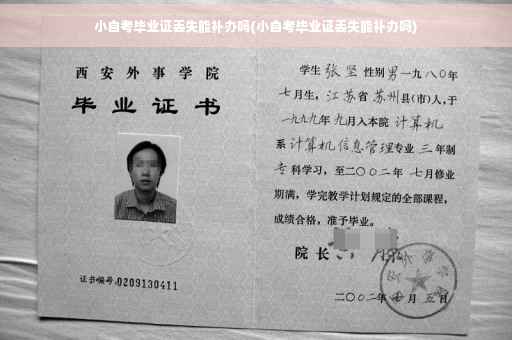 小自考毕业证丢失能补办吗(小自考毕业证丢失能补办吗)
西安外事学院
毕业证书
证书编号:0209130411
学生 张坚 性别 男 一九八〇年
七月生, 江苏省 苏州县(市)人,于
一九九九年 九月入本院 计算机
系 计算机信息管理专业 三 年制
专 科学习,至二〇〇二年 七月修业
期满,学完教学计划规定的全部课程,
成绩合格,准予毕业。
院 长
二〇〇二年 月 五 日